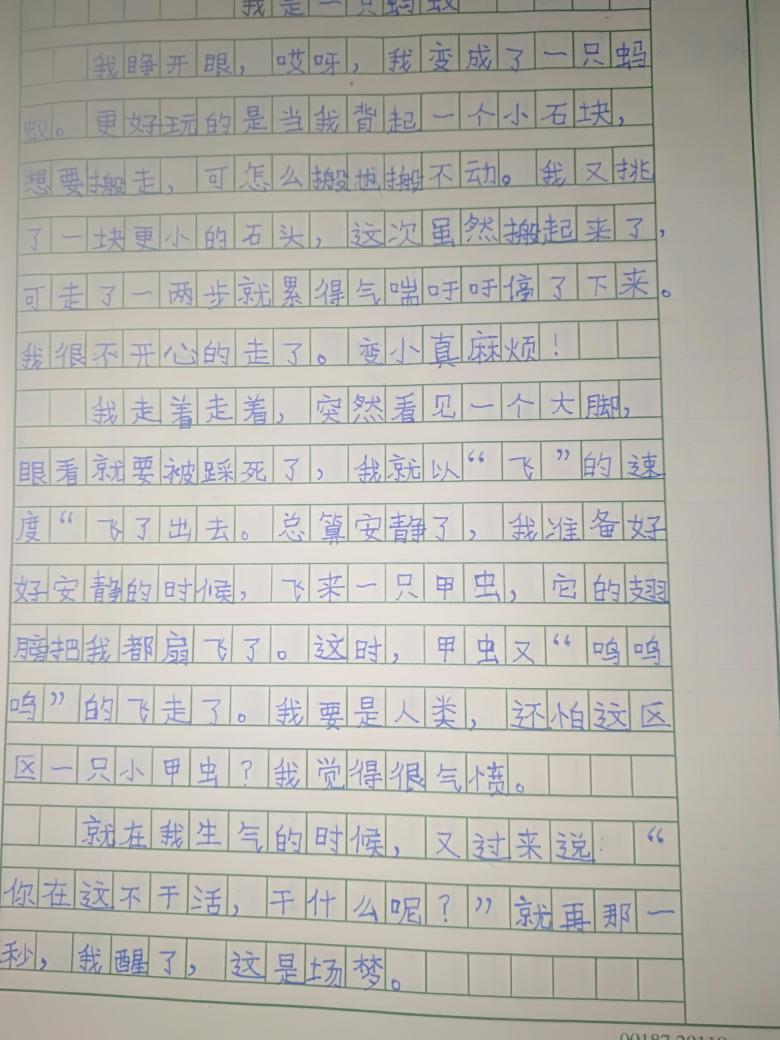 我是一只蚂蚁
我睁开眼，哎呀，我变成了一只蚂
蚁。更好玩的是当我背起一个小石块，
想要搬走，可怎么搬也搬不动。我又挑
了一块更小的石头，这次虽然搬起来了，
可走了一两步就累得气喘吁吁停了下来。
我很不开心的走了。变小真麻烦！
我走着走着，突然看见一个大脚，
眼看就要被踩死了，我就以“飞”的速
度“飞了出去。总算安静了，我准备好
好安静的时候，飞来一只甲虫，它的翅
膀把我都扇飞了。这时，甲虫又“呜呜
呜”的飞走了。我要是人类，还怕这区
区一只小甲虫？我觉得很气愤。
就在我生气的时候，又过来说：“
你在这不干活，干什么呢？”就再那一
秒，我醒了，这是场梦。